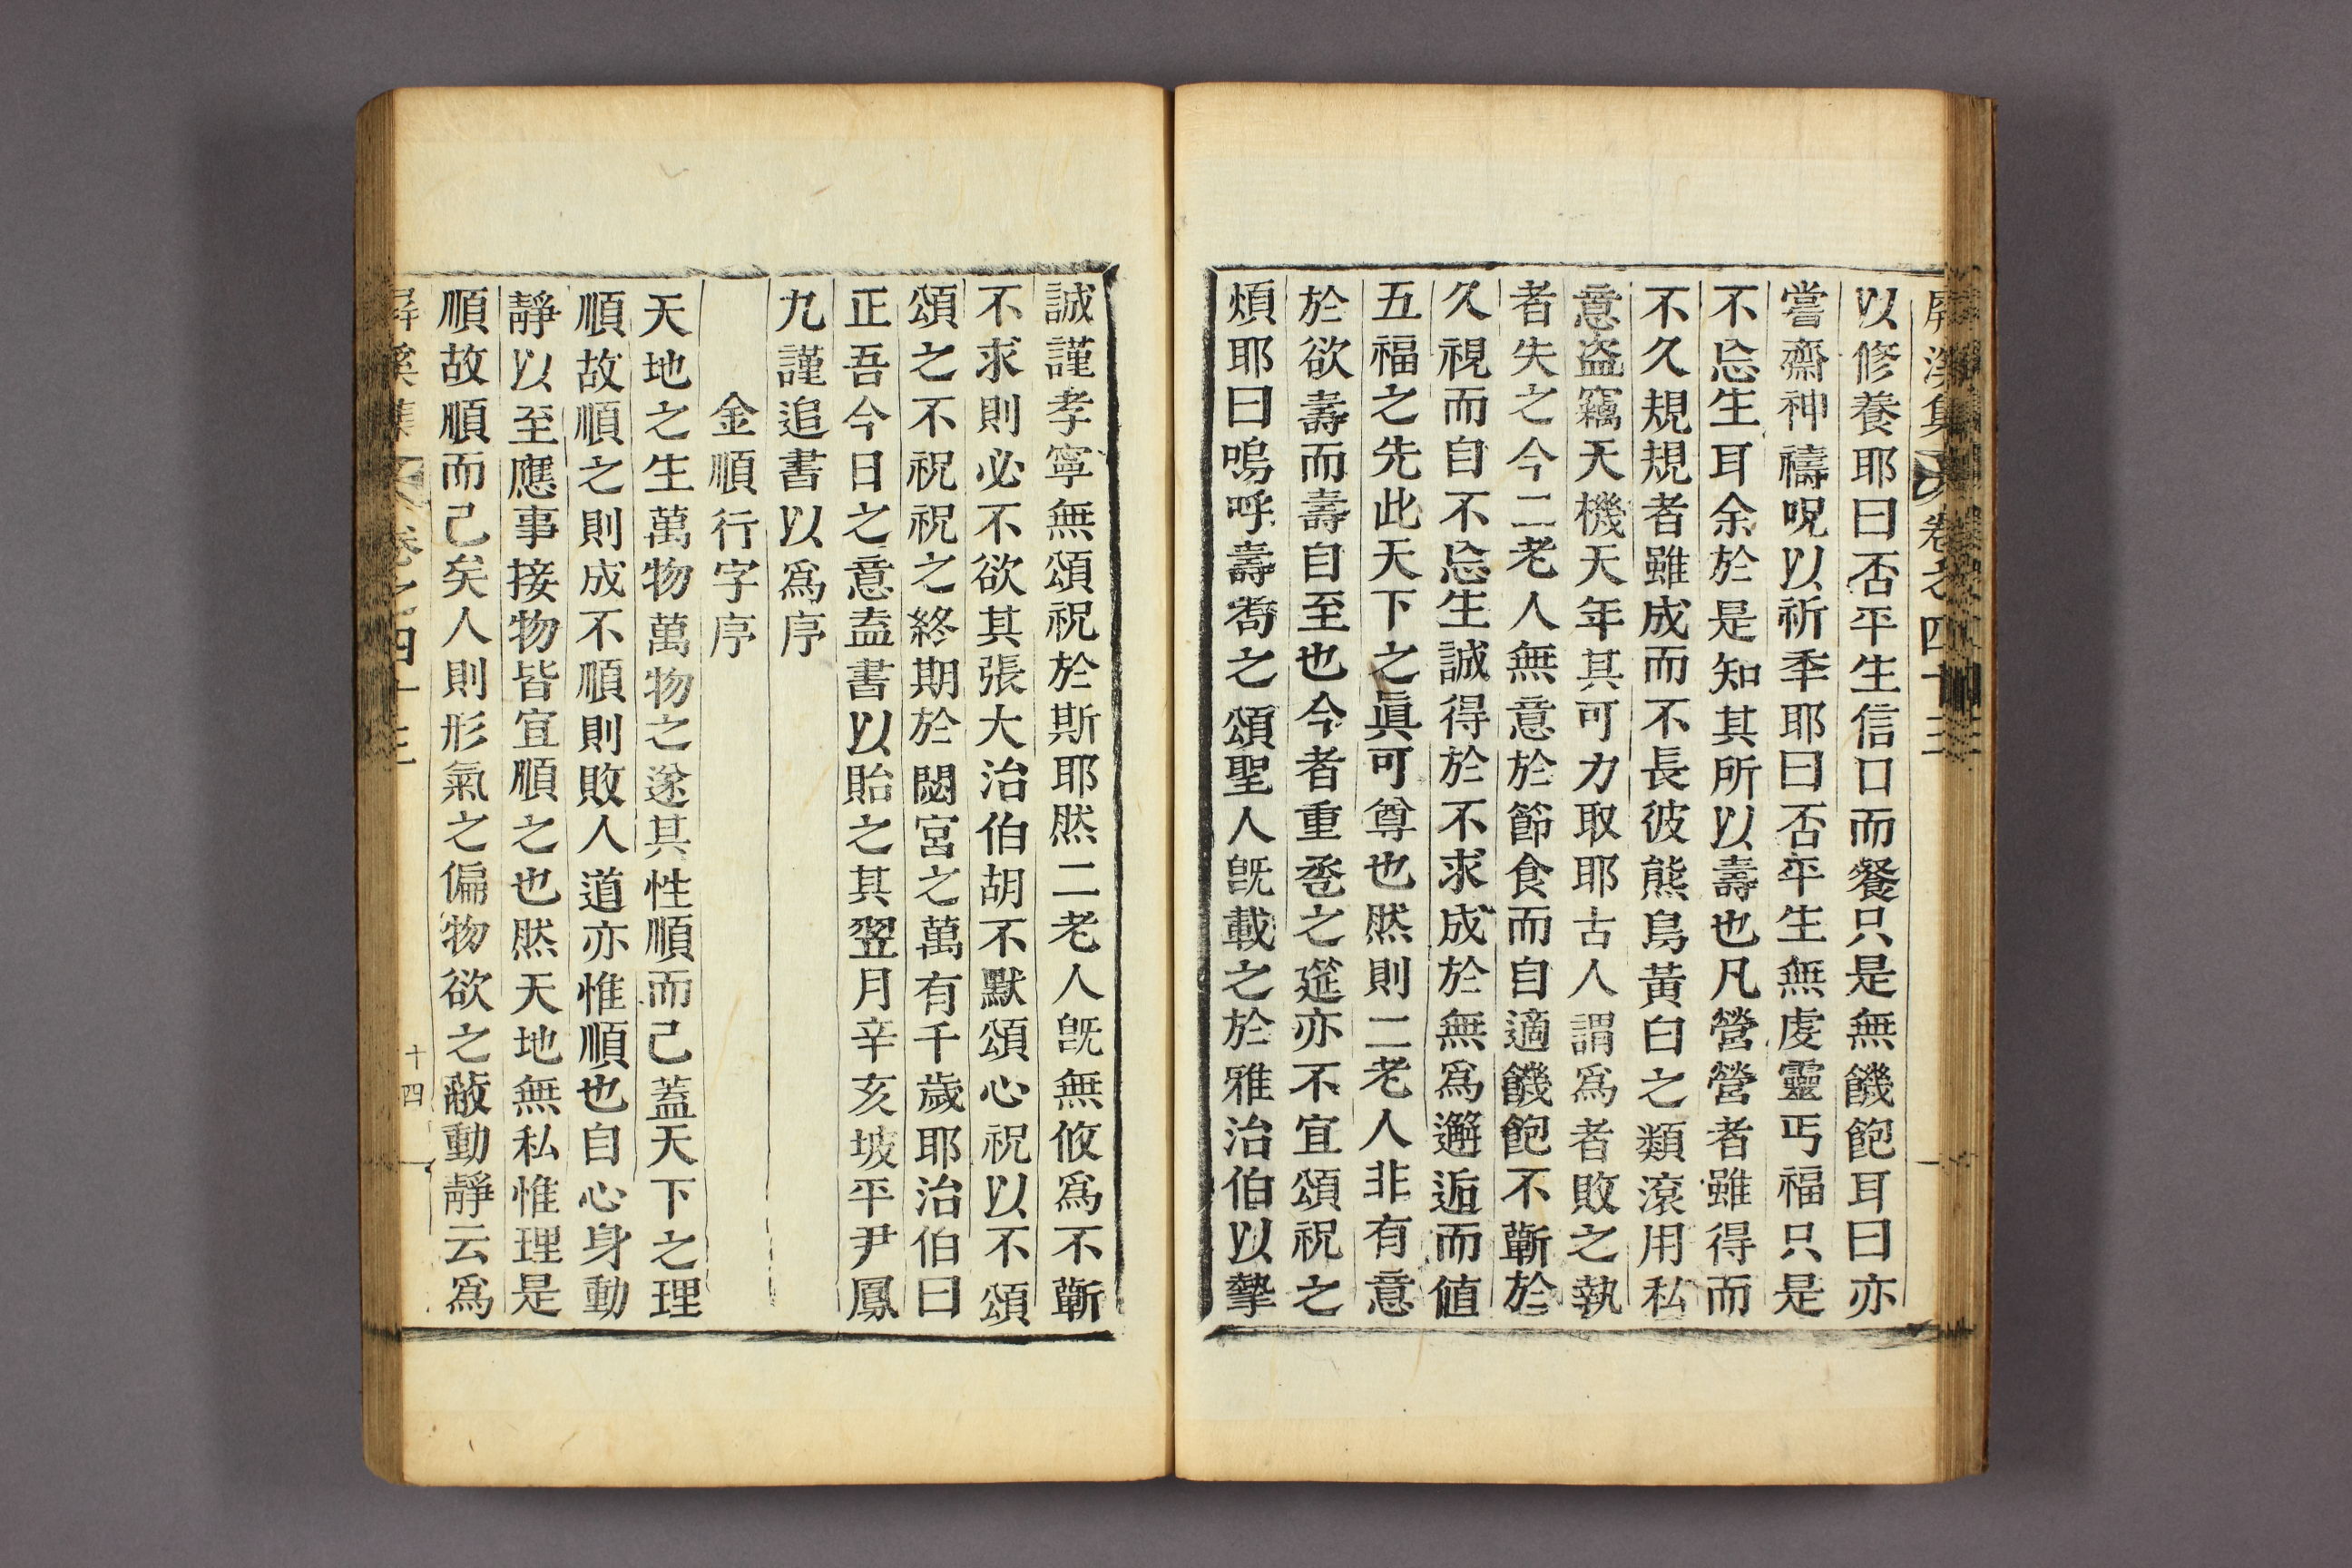 屛溪集 卷之四十三
以修養耶曰否平生信口而餐只是無饑飽耳曰亦
嘗齋神禱呪以祈年耶曰否平生無虔靈丐福只是
不忘生耳余於是知其所以壽也凡營營者雖得而
不久規規者雖成而不長彼熊鳥黃白之類滾用私
意盗竊天機天年其可力取耶古人謂爲者敗之執
者失之今二老人無意於節食而自適饑飽不蘄於
久視而自不忘生誠得於不求成於無爲邂逅而値
五福之先此天下之眞可尊也然則二老人非有意
於欲壽而壽自至也今者重巹之筵亦不宜頌祝之
煩耶曰嗚呼壽耈之頌聖人旣載之於雅治伯以摯
誠謹孝寧無頌祝於斯耶然二老人旣無攸爲不蘄
不求則必不欲其張大治伯胡不默頌心祝以不頌
頌之不祝祝之終期於閟宮之萬有千歲耶治伯曰
正吾今日之意盍書以貽之其翌月辛亥坡平尹鳳
九謹追書以爲序
金順行字序
天地之生萬物萬物之遂其性順而已蓋天下之理
順故順之則成不順則敗人道亦惟順也自心身動
靜以至應事接物皆宜順之也然天地無私惟理是
順故順而已矣人則形氣之偏物欲之蔽動靜云爲
屛溪集 卷之四十三 十四